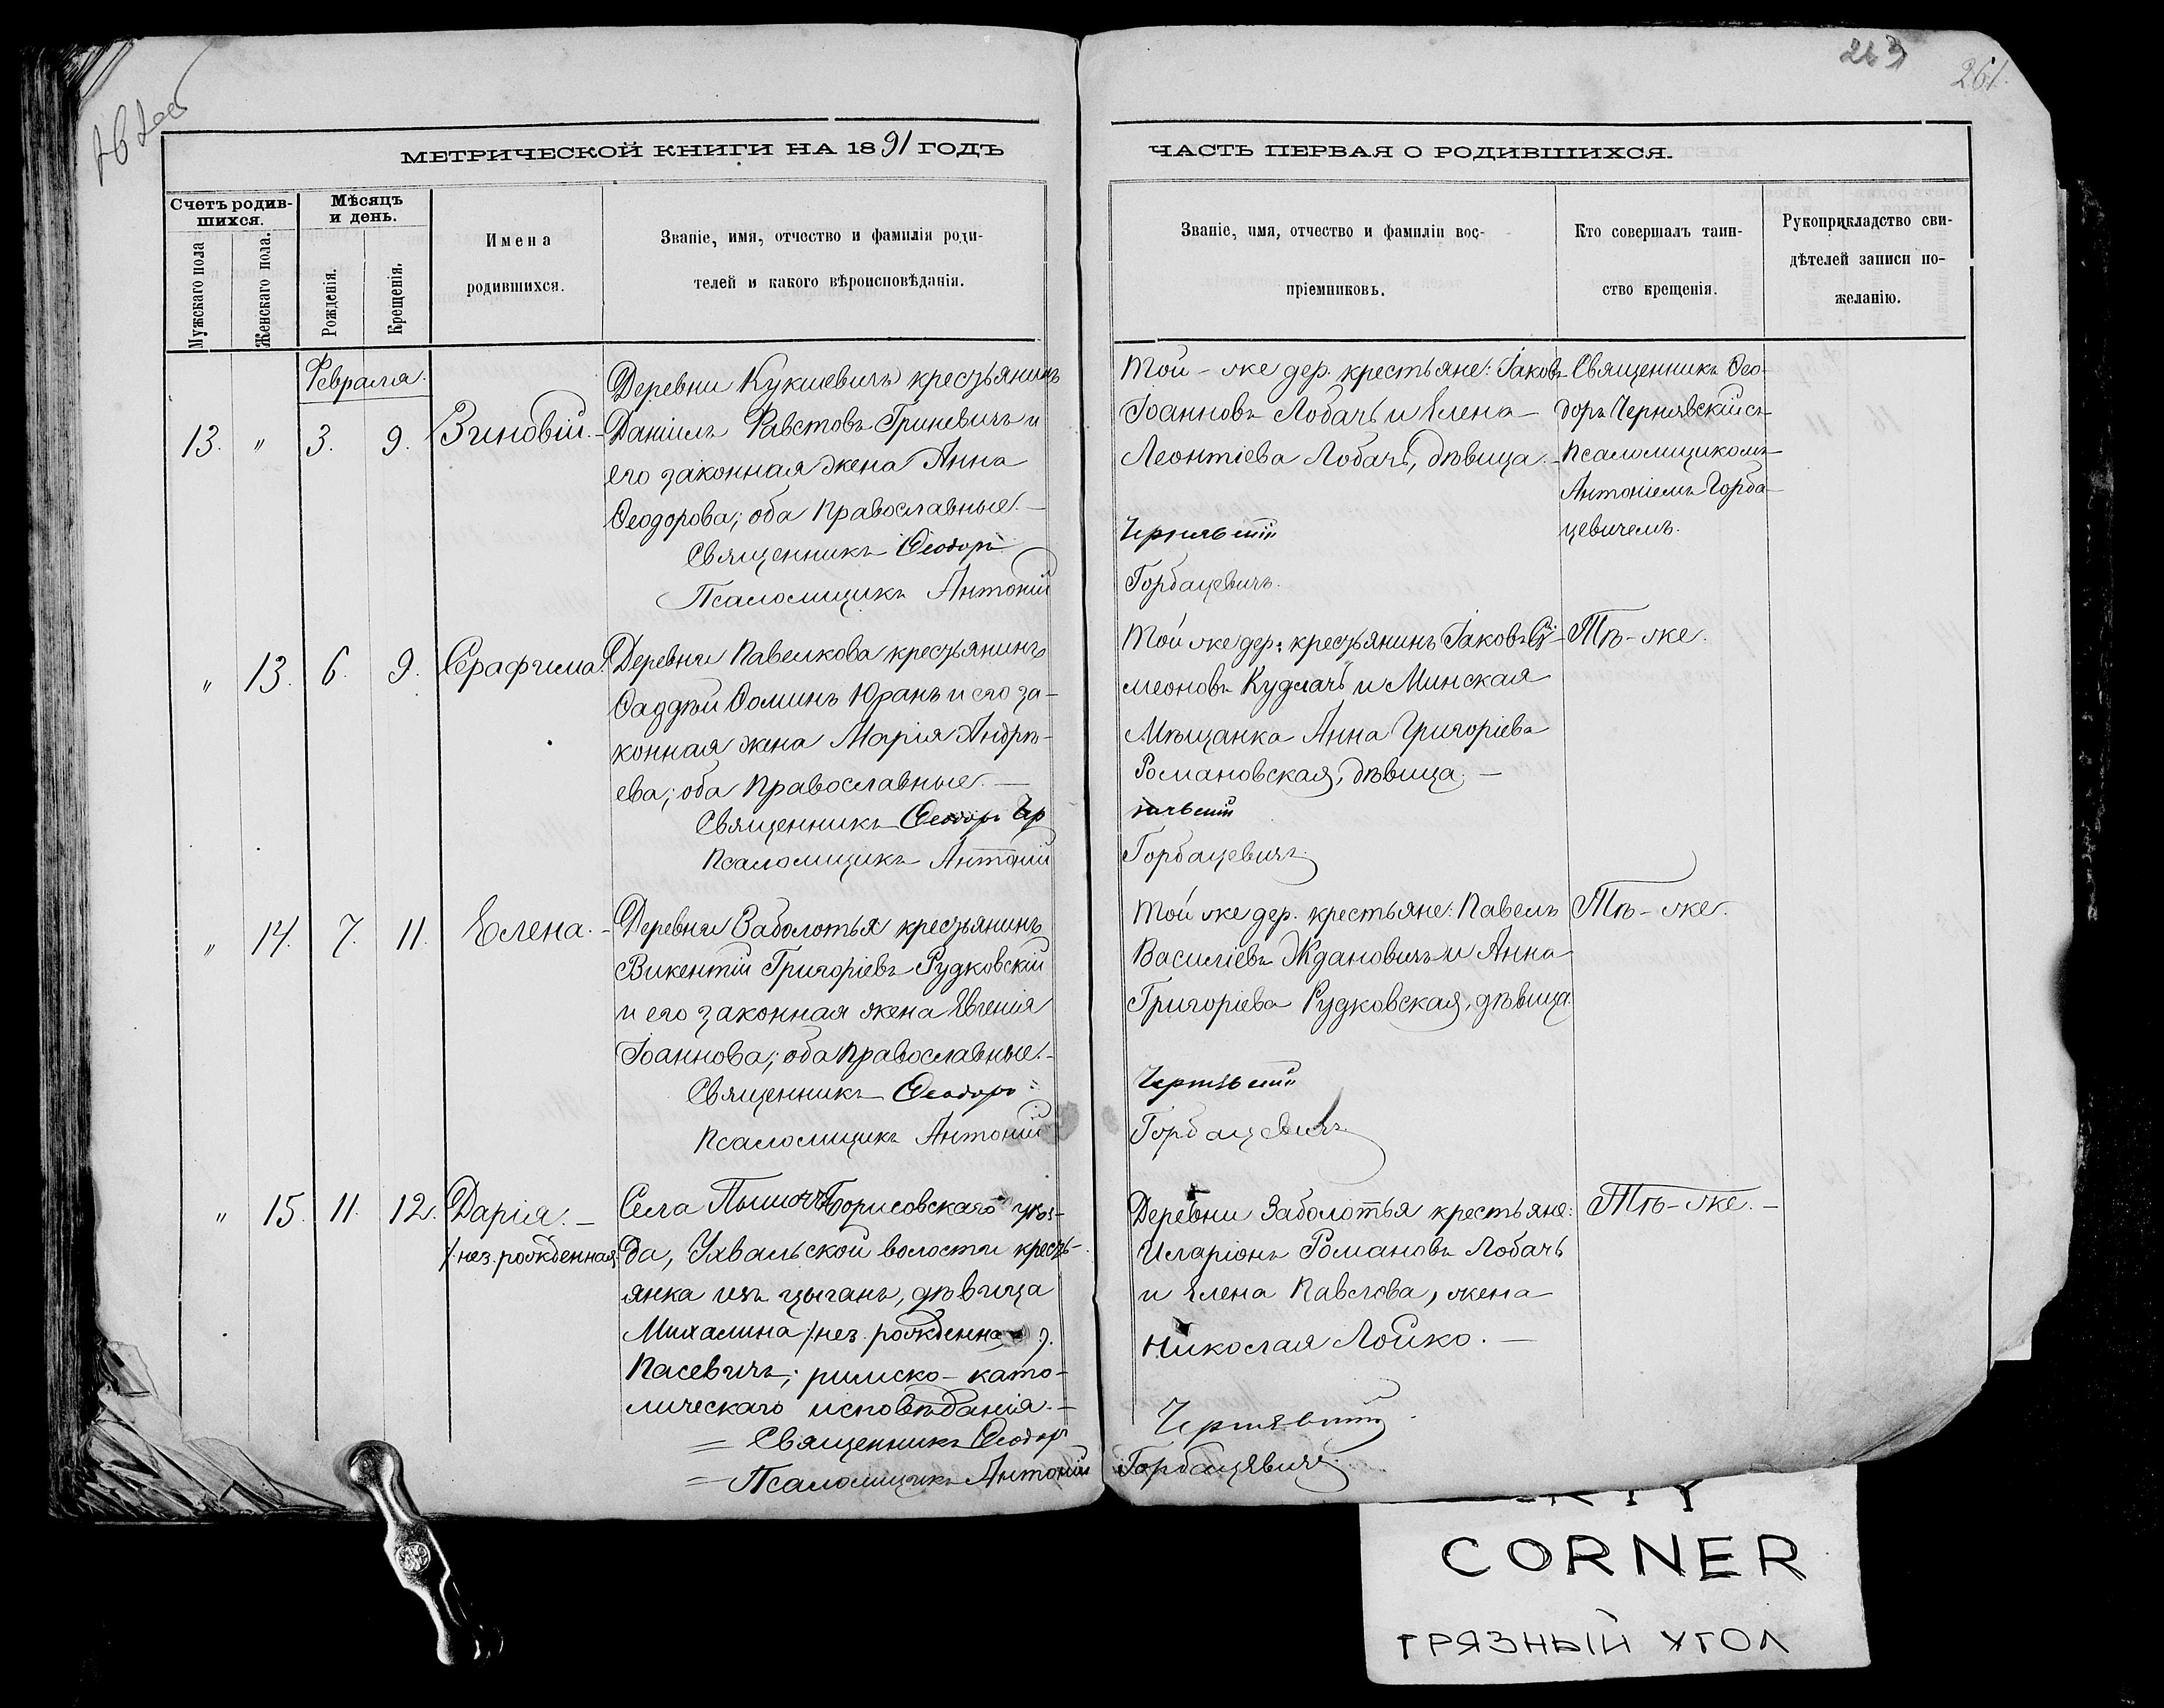 263
261.
МЕТРИЧЕСКОЙ КНИГИ НА 1891 ГОДЪ
ЧАСТЬ ПЕРВАЯ О РОДИВШИХСЯ.
Счетъ родив-
шихся.
Мужскаго пола
Женскаго пола.
Мѣсяцъ
и день.
Рожденія.
Крещенія.
Имена
родившихся.
Званіе, имя, отчество и фамилія роди-
телей и какого вѣроисповѣданія.
Званіе, имя, отчество и фамиліи вос-
пріемниковъ.
Кто совершалъ таин-
ство крещенія.
Рукоприкладство сви-
дѣтелей записи по-
желанію.
Февраля.
13. " 3. 9. Зиновій.
Деревни Кукшевичъ крестьянинъ
Даніилъ Фавстовъ Гриневичъ и
его законная жена Анна
Ѳеодорова; оба православные. —
Священникъ Ѳеодоръ
Псаломщикъ Антоній
Той-же дер. крестьяне: Іаковъ
Іоанновъ Лобачъ и Елена
Леонтіева Лобачъ, дѣвица. —
Чернявскій
Горбацевичъ.
Священникъ Ѳео-
доръ Чернявскій съ
Псаломщикомъ
Антоніемъ Горба-
цевичемъ.
" 13. 6. 9. Серафима.
Деревни Павелкова крестьянинъ
Ѳаддей Ѳоминъ Юранъ и его за-
конная жена Марія Андрѣ-
ева; оба православные. —
Священникъ Ѳеодоръ Чер
Псаломщикъ Антоній
Той же дер: крестьянинъ Іаковъ Си-
меоновъ Кудлачъ и Минская
Мѣщанка Анна Григоріева
Романовская, дѣвица. —
нявскій
Горбацевичъ.
Тѣ-же.
" 14. 7. 11. Елена. —
Деревни Заболотья крестьянинъ
Викентій Григоріевъ Рудковскій
и его законная жена Евгенія
Іоаннова; оба православные. —
Священникъ Ѳеодоръ
Псаломщикъ Антоній
Той же дер. крестьяне: Павелъ
Василіевъ Ждановичъ и Анна
Григоріева Рудковская, дѣвица.
Чернявскій
Горбацевичъ.
Тѣ-же.
" 15. 11. 12. Дарія. —
/нез. рожденная/
Села Борисовскаго уѣз-
да, Ухвальской волости кресть-
янка изъ цыганъ, дѣвица
Михалина /нез. рожденна
Пасевичъ; римско-като-
лическаго исповѣданія. —
= Священникъ Ѳеодоръ
= Псаломщикъ Антоній
Деревни Заболотья крестьяне:
Иларіонъ Романовъ Лобачъ
и Елена Павлова, жена
Николая Лойко. —
Чернявскій
Горбацевичъ.
Тѣ-же. —
CORNER
ГРЯЗНЫЙ УГОЛ